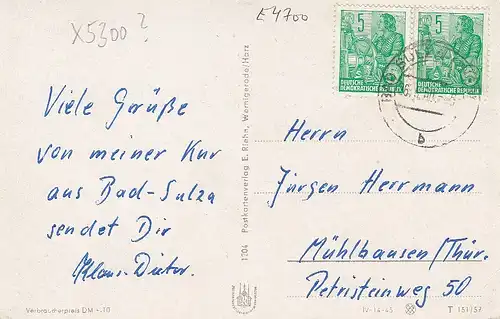 X5300?
E4700
5
5
DEUTSCHE
DEMOKRATISCHE REPUBLIK
DEUTSCHE
DEMOKRATISCHE REPUBLIK
b
Viele Grüße
von meiner Kur
aus Bad-Sulza
sendet Dir
Klaus-Dieter.
1204 Postkartenverlag E. Riehn, Wernigerode/Harz
Herrn
Jürgen Herrmann
Mühlhausen/Thür.
Petristeinweg 50
Verbraucherpreis DM -.10
IV-14-45
T 151/57